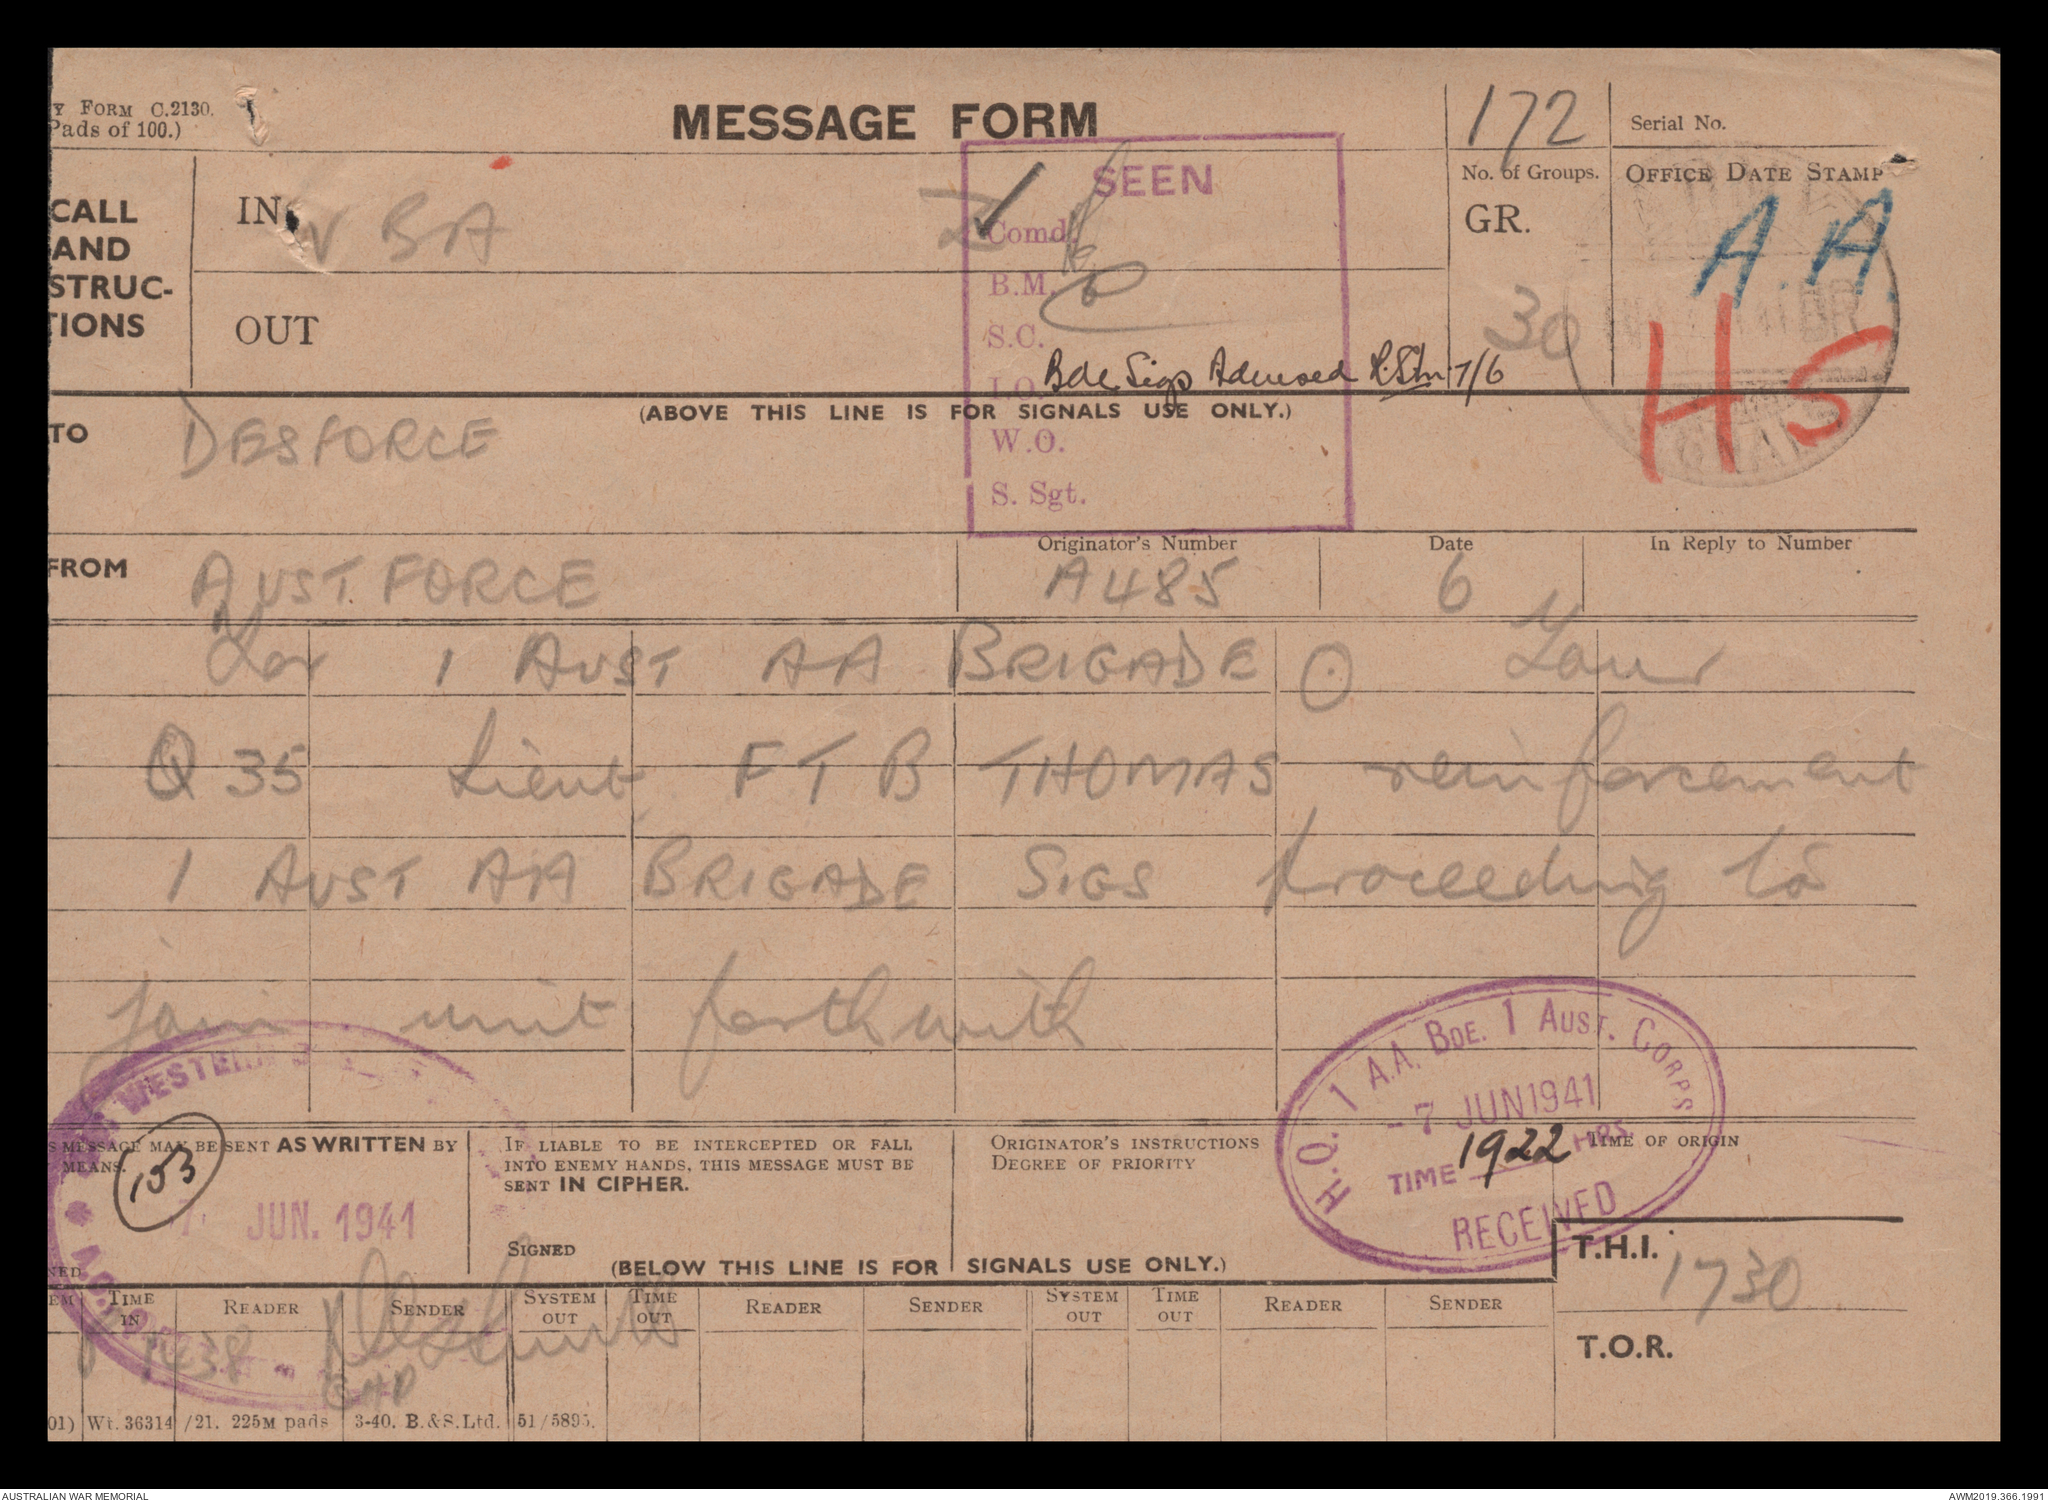 Y FORM C.2130.
Pads of 100.)
MESSAGE FORM
172
Serial No.
No. of Groups.
OFFICE DATE STAMP
CALL
AND
STRUC-
TIONS
IN
V BA
SEEN
Comd.
B.M.
S.C.
I.O.
W.O.
S. Sgt.
GR.
30
A.A.
HS
OUT
Bde Sigs Advised 7/6
(ABOVE THIS LINE IS FOR SIGNALS USE ONLY.)
TO
DESFORCE
FROM
AUST FORCE
Originator's Number
A485
Date
6
In Reply to Number
For 1 AUST AA BRIGADE ⊙ Your
Q 35 Lieut F T B THOMAS reinforcement
1 AUST AA BRIGADE SIGS proceeding to
join unit forthwith
WESTERN
H.Q. 1 A.A. BDE. 1 AUST. CORPS
- 7 JUN 1941
TIME 1922 HRS
RECEIVED
S MESSAGE MAY BE SENT AS WRITTEN BY
MEANS.
153
7 JUN. 1941
IF LIABLE TO BE INTERCEPTED OR FALL
INTO ENEMY HANDS, THIS MESSAGE MUST BE
SENT IN CIPHER.
SIGNED
ORIGINATOR'S INSTRUCTIONS
DEGREE OF PRIORITY
TIME OF ORIGIN
NED
(BELOW THIS LINE IS FOR SIGNALS USE ONLY.)
T.H.I.
1730
T.O.R.
EM
TIME
IN
READER
SENDER
SYSTEM
OUT
TIME
OUT
READER
SENDER
SYSTEM
OUT
TIME
OUT
READER
SENDER
1738
01) Wt. 36314/21. 225M pads 3-40. B.&S.Ltd. 51/5895.
AUSTRALIAN WAR MEMORIAL
AWM2019.366.1991